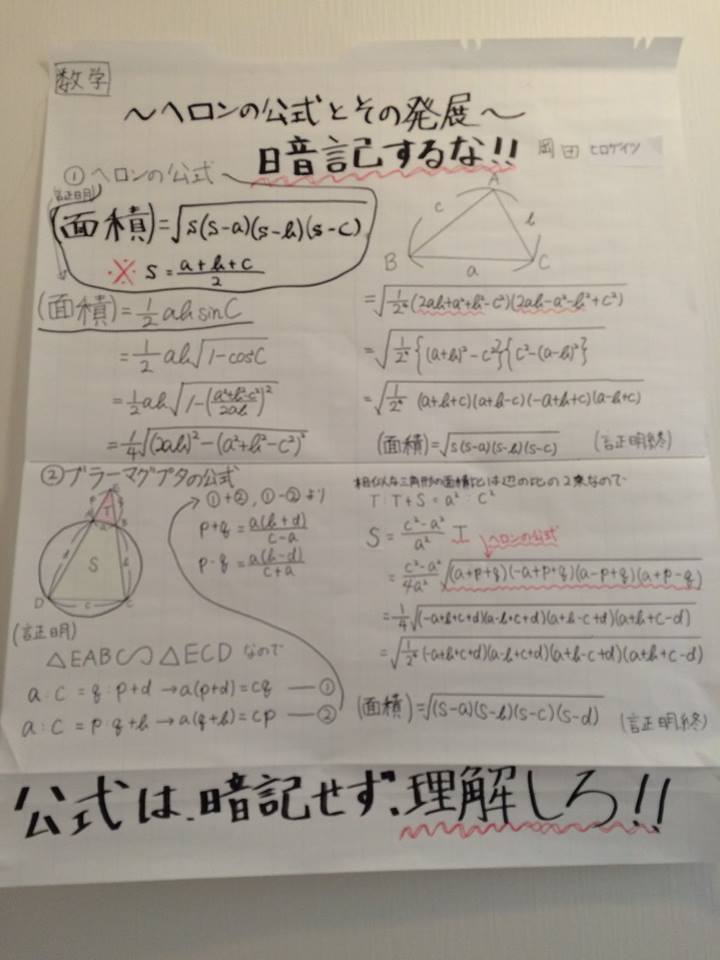 数学
～ヘロンの公式とその発展～
暗記するな!! 岡田 ヒロケイン
① ヘロンの公式
(証明)
(面積)=√s(s-a)(s-b)(s-c)
※ s = a+b+c/2
A
c b
B a C
(面積) = 1/2 ab sinC
= 1/2 ab√1-cos²C
= 1/2 ab√1-(a²+b²-c²/2ab)²
= 1/4 √(2ab)²-(a²+b²-c²)²
= √1/2⁴ (2ab+a²+b²-c²)(2ab-a²-b²+c²)
= √1/2⁴ {(a+b)²-c²}{c²-(a-b)²}
= √1/2⁴ (a+b+c)(a+b-c)(-a+b+c)(a-b+c)
(面積)=√s(s-a)(s-b)(s-c) (証明終)
② ブラーマグプタの公式
E
P q
T
A a B
d S b
D c C
(証明)
△EABC∽△ECD なので
a:c = q:p+d →a(p+d)=cq ―①
a:c = p:q+b →a(q+b)=cp ―②
①+②, ①-② より
p+q = a(b+d)/c-a
p-q = a(b-d)/c+a
相似な三角形の面積比は辺の比の2乗なので
T:T+S = a²:c²
S = c²-a²/a² T ヘロンの公式
= c²-a²/4a² √(a+p+q)(-a+p+q)(a-p+q)(a+p-q)
= 1/4 √(-a+b+c+d)(a-b+c+d)(a+b-c+d)(a+b+c-d)
= √1/2⁴ (-a+b+c+d)(a-b+c+d)(a+b-c+d)(a+b+c-d)
(面積)=√(s-a)(s-b)(s-c)(s-d) (証明終)
公式は、暗記せず、理解しろ!!